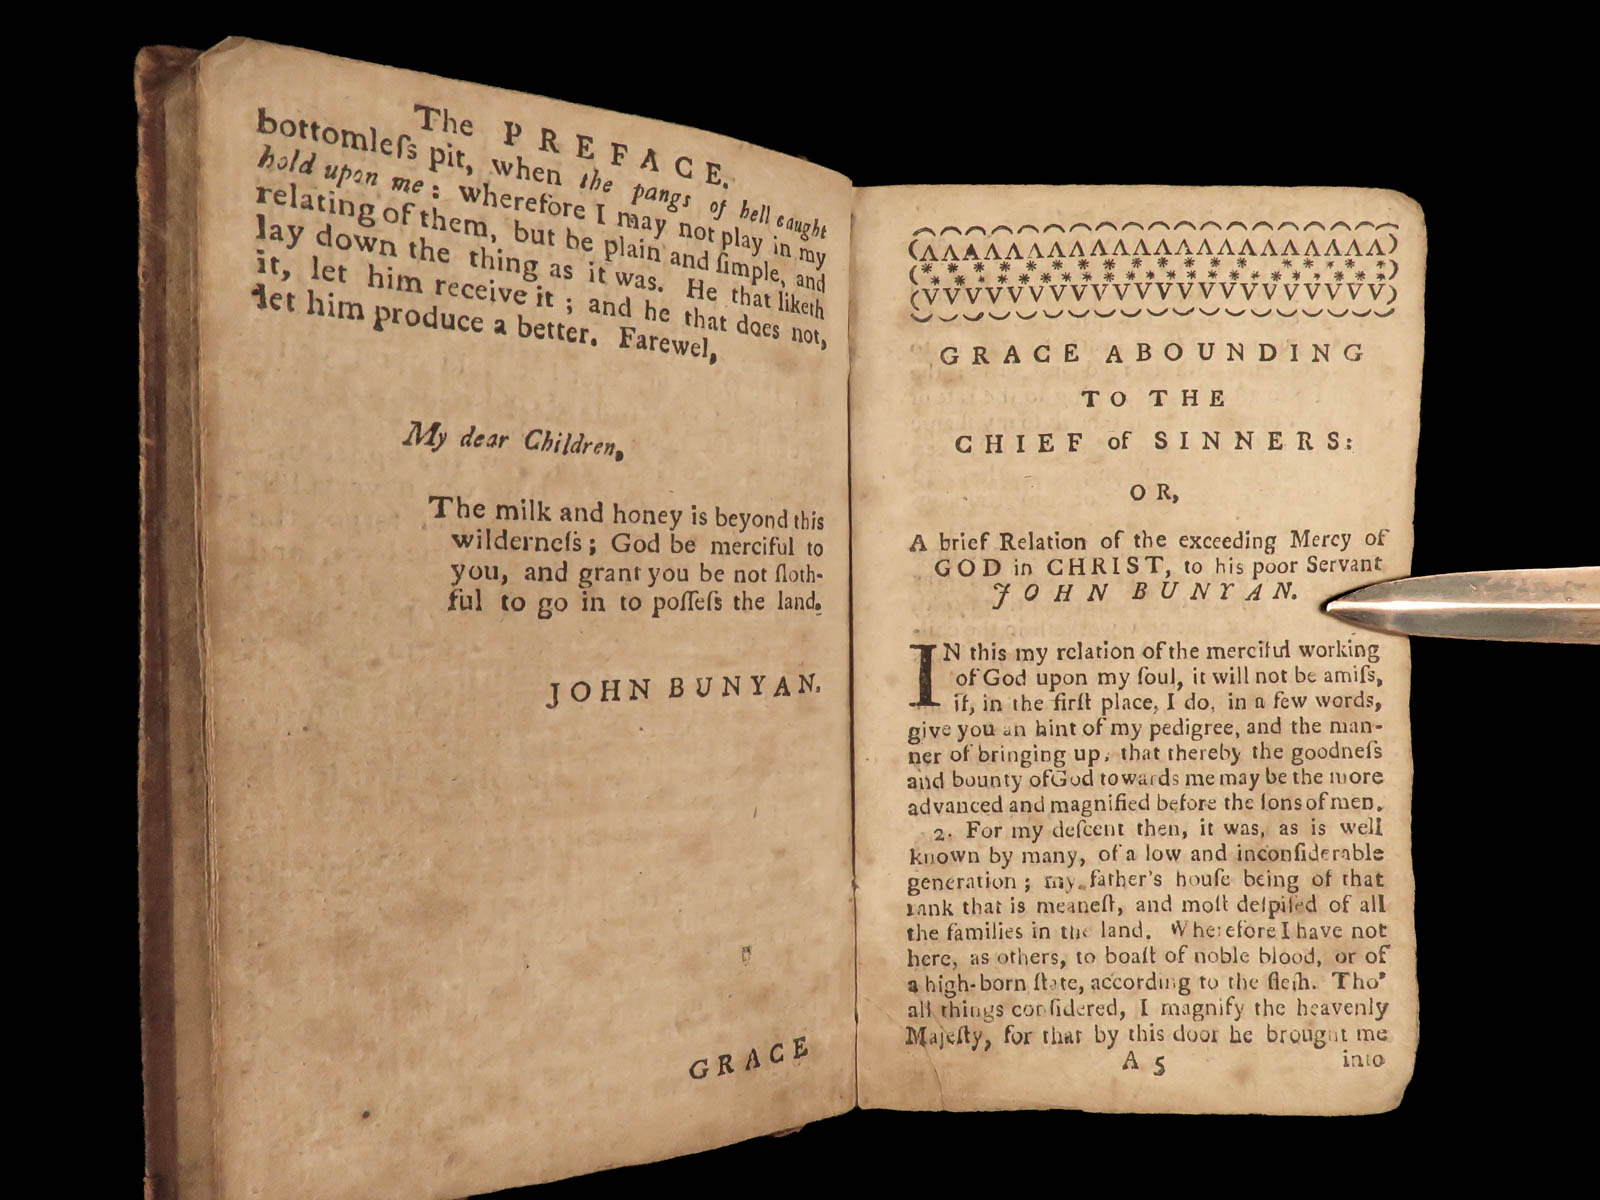 The PREFACE.
bottomleſs pit, when the pangs of hell caught
hold upon me: wherefore I may not play in my
relating of them, but be plain and ſimple, and
lay down the thing as it was. He that liketh
it, let him receive it; and he that does not,
let him produce a better. Farewel,
My dear Children,
The milk and honey is beyond this
wilderneſs; God be merciful to
you, and grant you be not ſloth-
ful to go in to poſſeſs the land.
JOHN BUNYAN.
GRACE
GRACE ABOUNDING
TO THE
CHIEF of SINNERS:
OR,
A brief Relation of the exceeding Mercy of
GOD in CHRIST, to his poor Servant
JOHN BUNYAN.
IN this my relation of the merciful working
of God upon my ſoul, it will not be amiſs,
if, in the firſt place, I do, in a few words,
give you an hint of my pedigree, and the man-
ner of bringing up, that thereby the goodneſs
and bounty of God towards me may be the more
advanced and magnified before the ſons of men.
2. For my deſcent then, it was, as is well
known by many, of a low and inconſiderable
generation; my father's houſe being of that
rank that is meaneſt, and moſt deſpiſed of all
the families in the land. Wherefore I have not
here, as others, to boaſt of noble blood, or of
a high-born ſtate, according to the fleſh. Tho'
all things conſidered, I magnify the heavenly
Majeſty, for that by this door he brought me
A 5 into